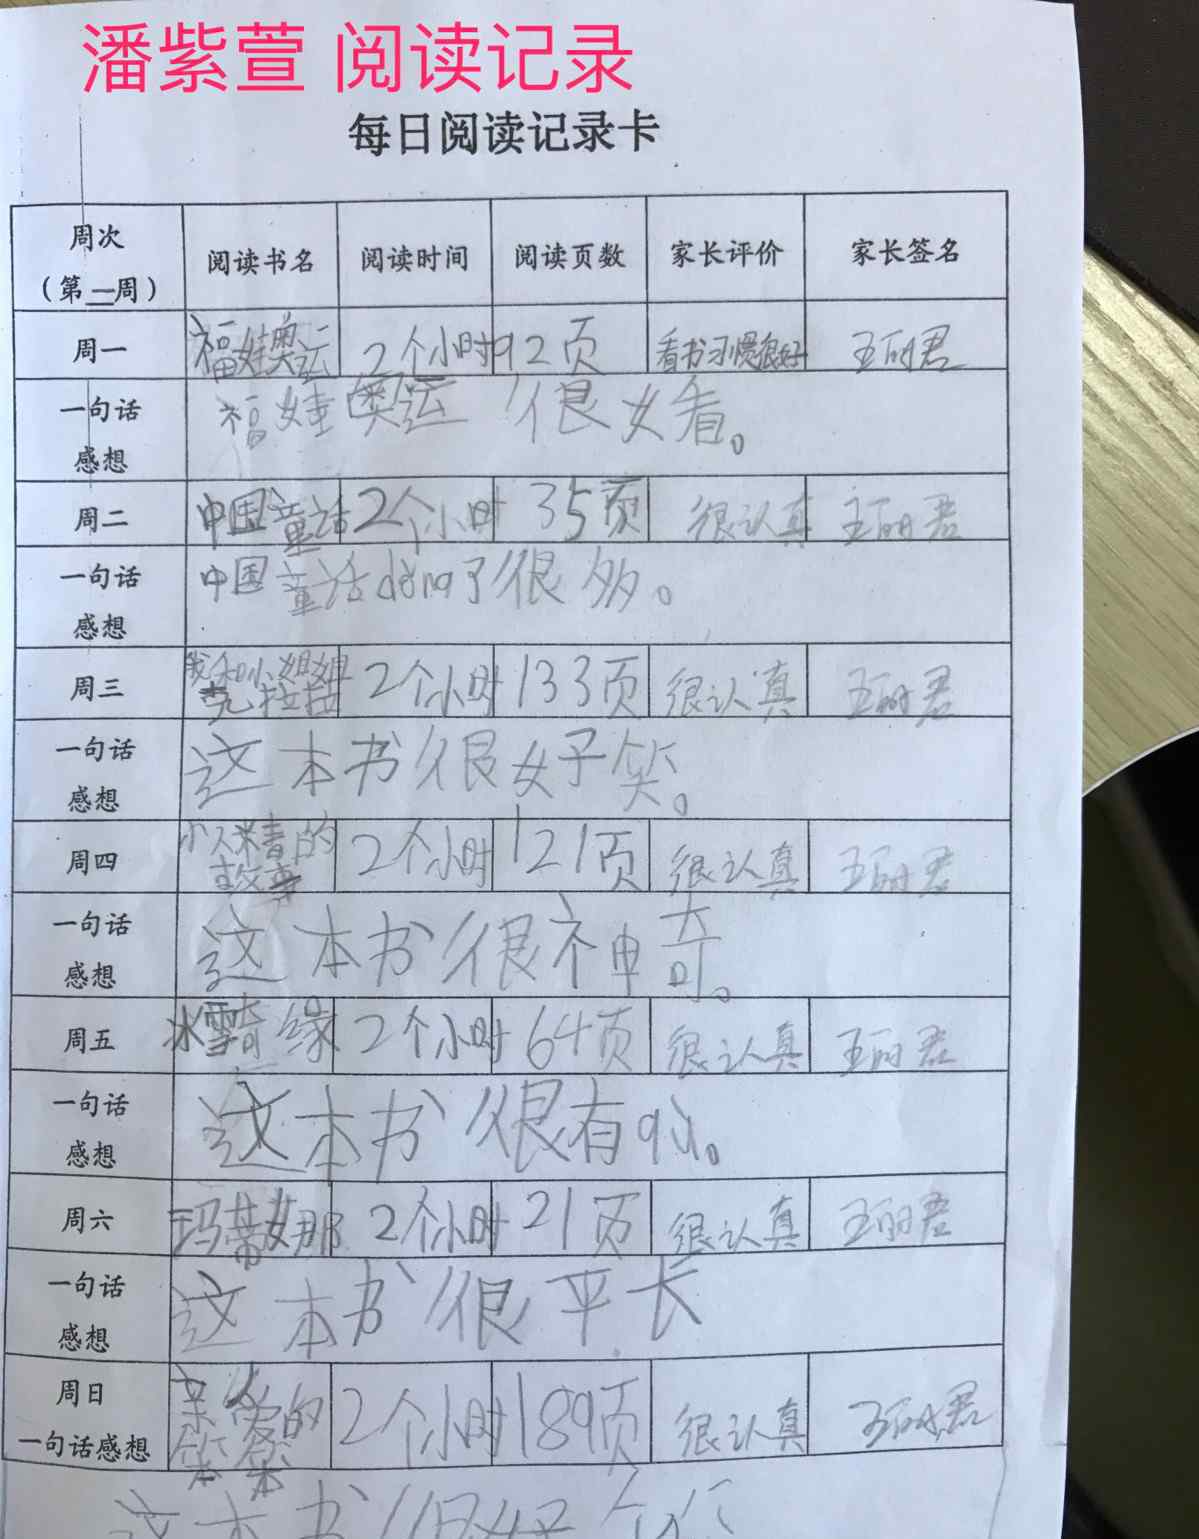 潘紫萱 阅读记录
每日阅读记录卡
周次
(第一周)
阅读书名
阅读时间
阅读页数
家长评价
家长签名
周一
福娃奥运
2个小时
92页
看书习惯很好
王丽君
一句话
感想
福娃奥运很好看。
周二
中国童话
2个小时
35页
很认真
王丽君
一句话
感想
中国童话dǒng了很多。
周三
我和小姐姐
克拉拉
2个小时
133页
很认真
王丽君
一句话
感想
这本书很好笑。
周四
小人精的
故事
2个小时
121页
很认真
王丽君
一句话
感想
这本书很神奇。
周五
冰雪奇缘
2个小时
64页
很认真
王丽君
一句话
感想
这本书很有qù。
周六
玛蒂娜
2个小时
21页
很认真
王丽君
一句话
感想
这本书很平长
周日
一句话感想
亲爱的
笨笨
2个小时
189页
很认真
王丽君
这本书很好